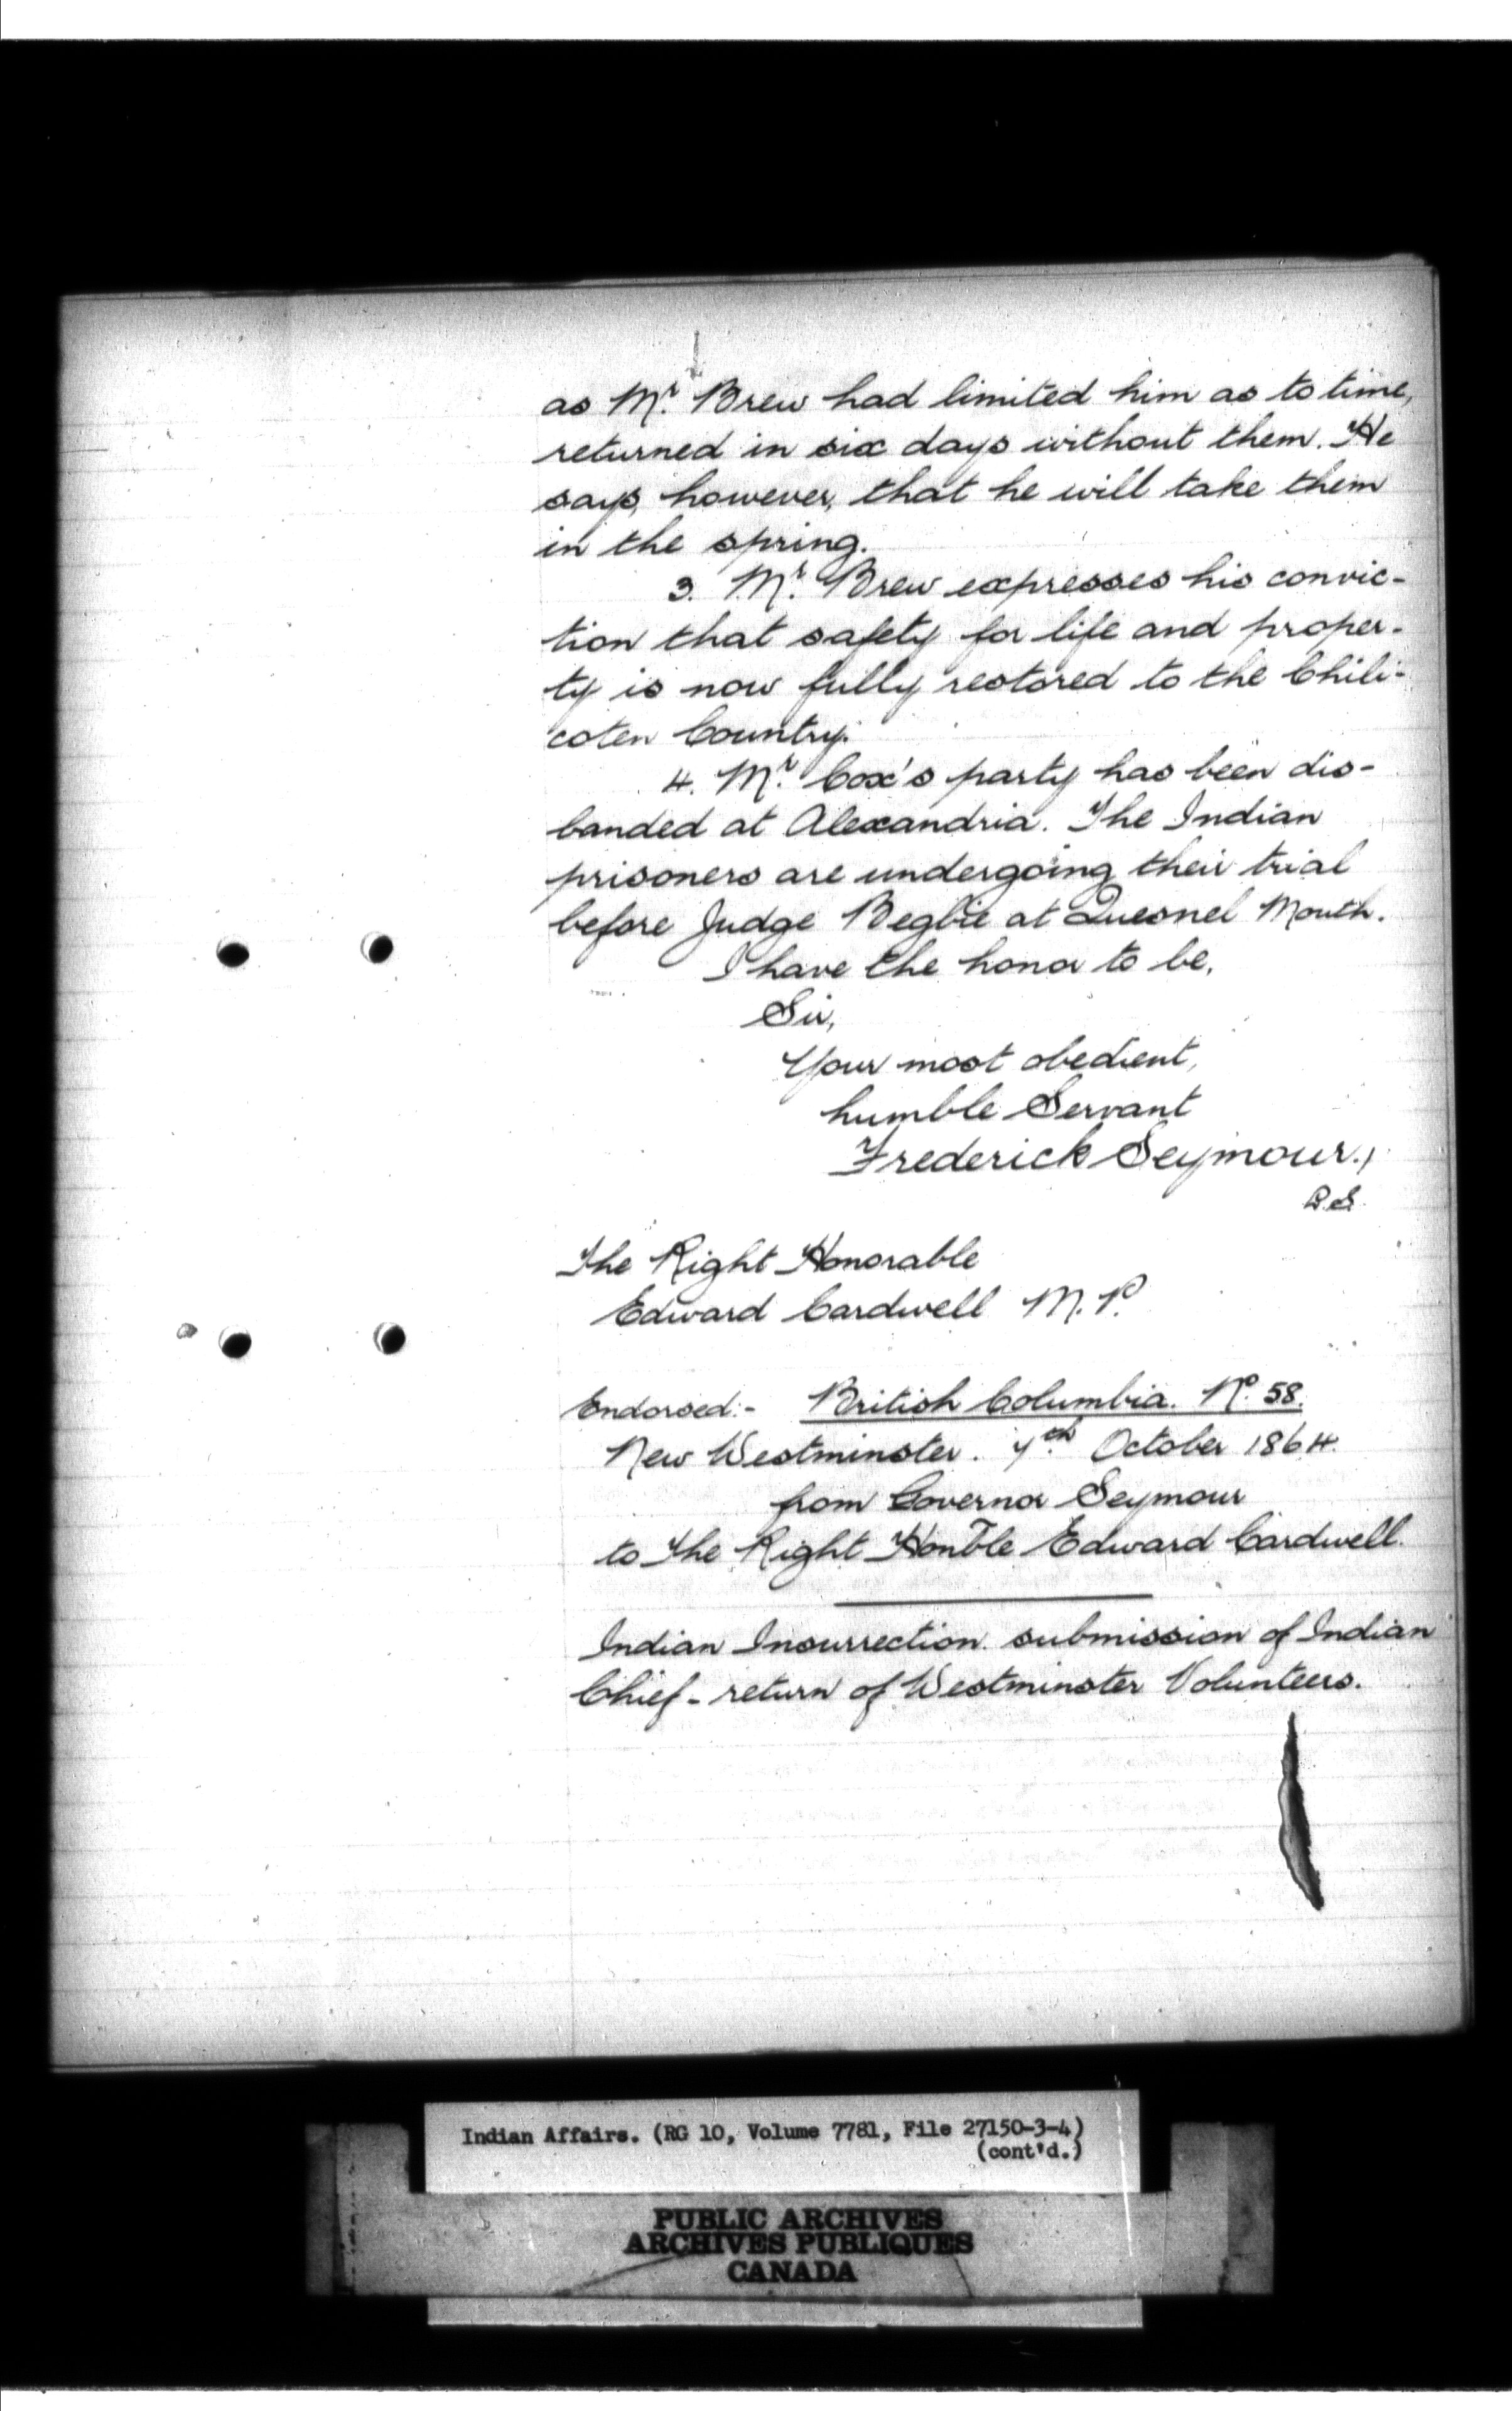 as Mr. Brew had limited him as to time,
returned in six days without them. He
says, however, that he will take them
in the spring.
3. Mr. Brew expresses his convic-
tion that safety for life and proper-
ty is now fully restored to the Chili-
coten Country.
4. Mr. Cox's party has been dis-
banded at Alexandria. The Indian
prisoners are undergoing their trial
before Judge Begbie at Quesnel Mouth.
I have the honor to be,
Sir,
Your most obedient,
humble Servant
Frederick Seymour.
The Right Honorable
Edward Cardwell M.P.
Endorsed:- British Columbia. No. 58.
New Westminster. 4th October 1864.
from Governor Seymour
to The Right Honble Edward Cardwell.
Indian Insurrection. submission of Indian
Chief - return of Westminster Volunteers.
Indian Affairs. (RG 10, Volume 7781, File 27150-3-4)
(cont'd.)
PUBLIC ARCHIVES
ARCHIVES PUBLIQUES
CANADA